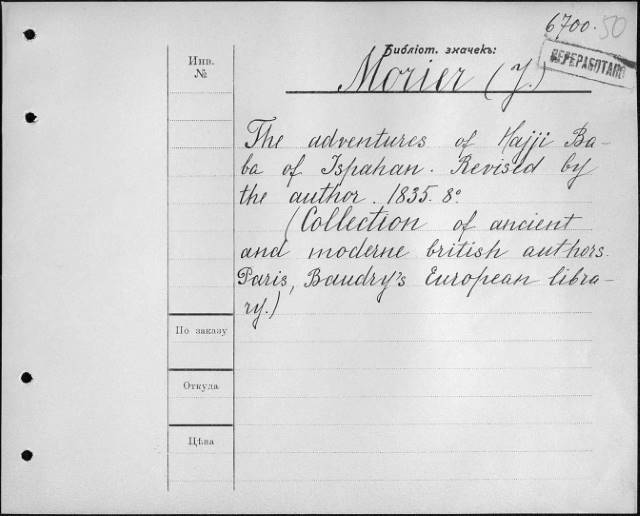 6700.50
Библіот. значекъ:
ПЕРЕРАБОТАНО
Инв.
№
Morier (J.)
The adventures of Hajji Ba-
ba of Ispahan. Revised by
the author. 1835. 8º.
(Collection of ancient
and moderne british authors.
Paris, Baudry's European libra-
ry.)
По заказу
Откуда
Цѣна